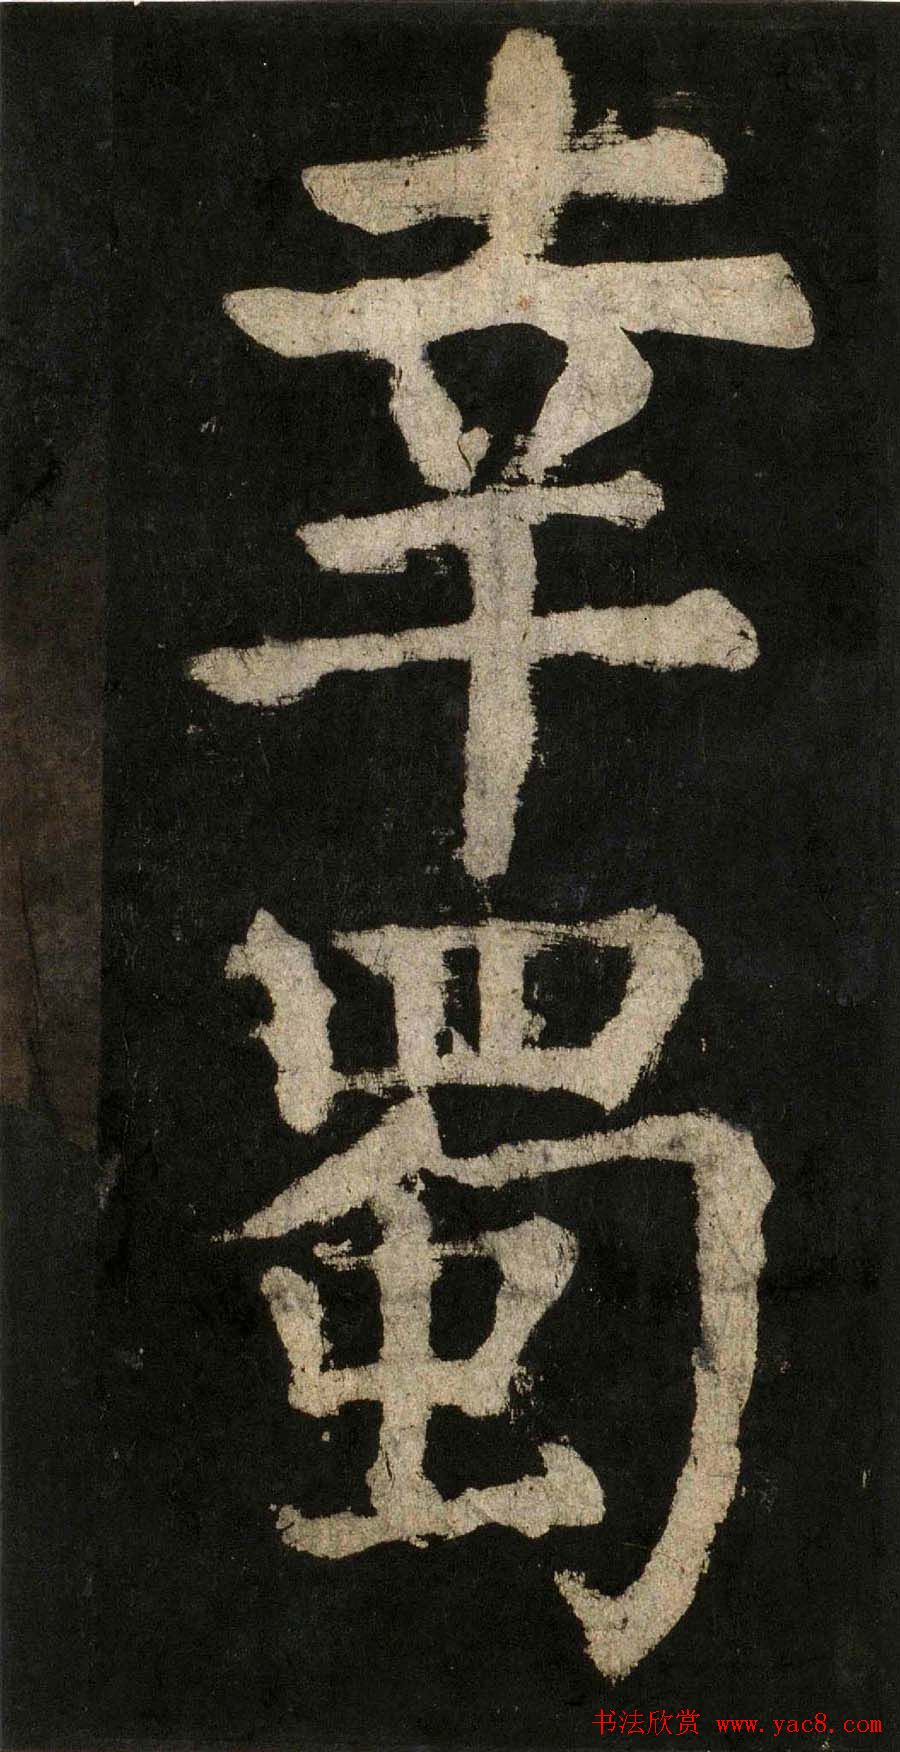 幸
蜀
书法欣赏 www.yac8.com